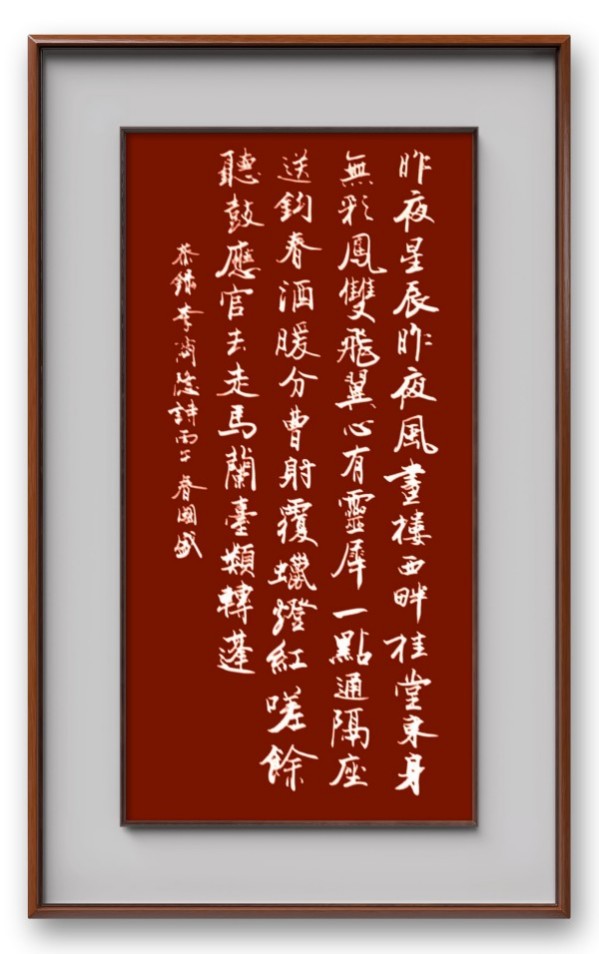 昨夜星辰昨夜風畫樓西畔桂堂東身
無彩鳳雙飛翼心有靈犀一點通隔座
送鈎春酒暖分曹射覆蠟燈紅嗟餘
聽鼓應官去走馬蘭臺類轉蓬
恭錄李商隱詩丙午春國盛